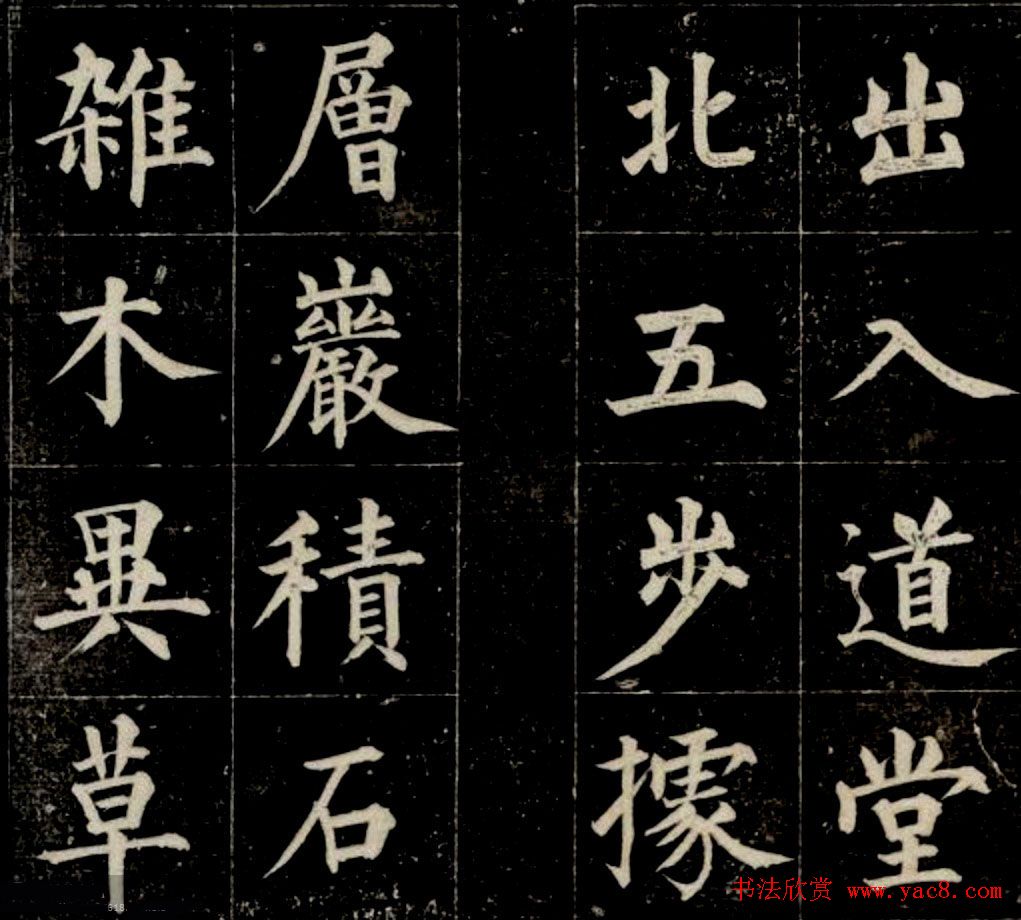 出入道堂
北五步據
層巖積石
雜木異草
书法欣赏 www.yac8.com